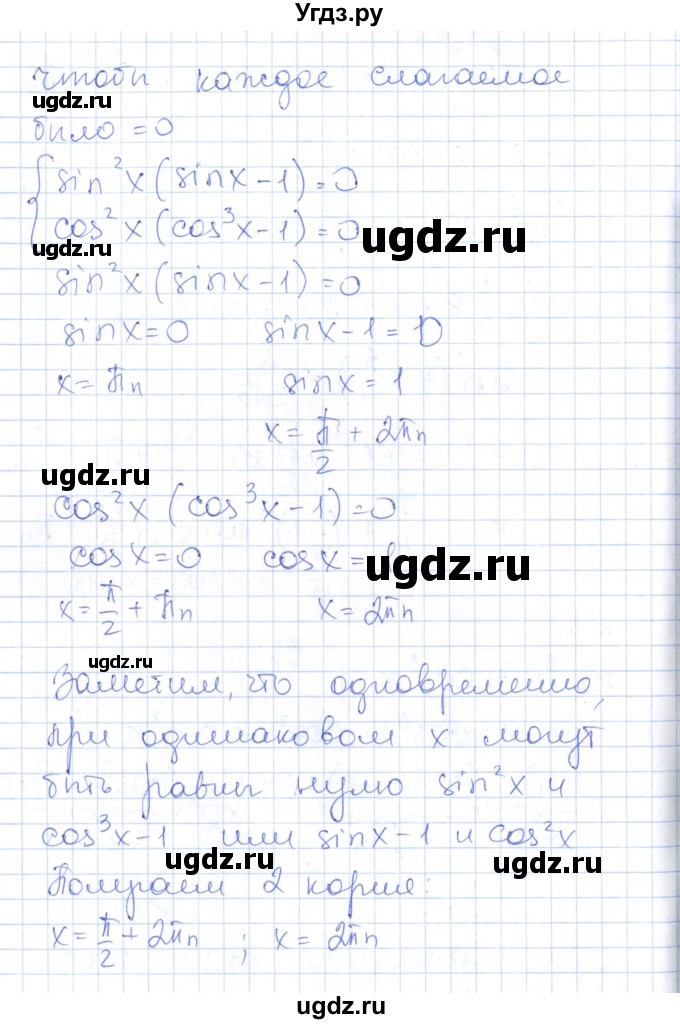 Угдз.ру
чтобы каждое слагаемое
ugdz.ru
было = 0
sin²x(sinx−1)=0
cos²x(cos³x−1)=0
ugdz.ru
ugdz.ru
sin²x(sinx−1)=0
sinx=0 sinx−1=0
x=πn sinx=1
x=π/2+2πn
ugdz.ru
cos²x(cos³x−1)=0
cosx=0 cosx=
ugdz.ru
x=π/2+πn x=2πn
ugdz.ru
Заметим, что одновременно,
при одинаковом x могут
быть равны нулю sin²x и
cos³x−1 или sinx−1 и cos²x
ugdz.ru
ugdz.ru
Получаем 2 корня:
x=π/2+2πn ; x=2πn
ugdz.ru